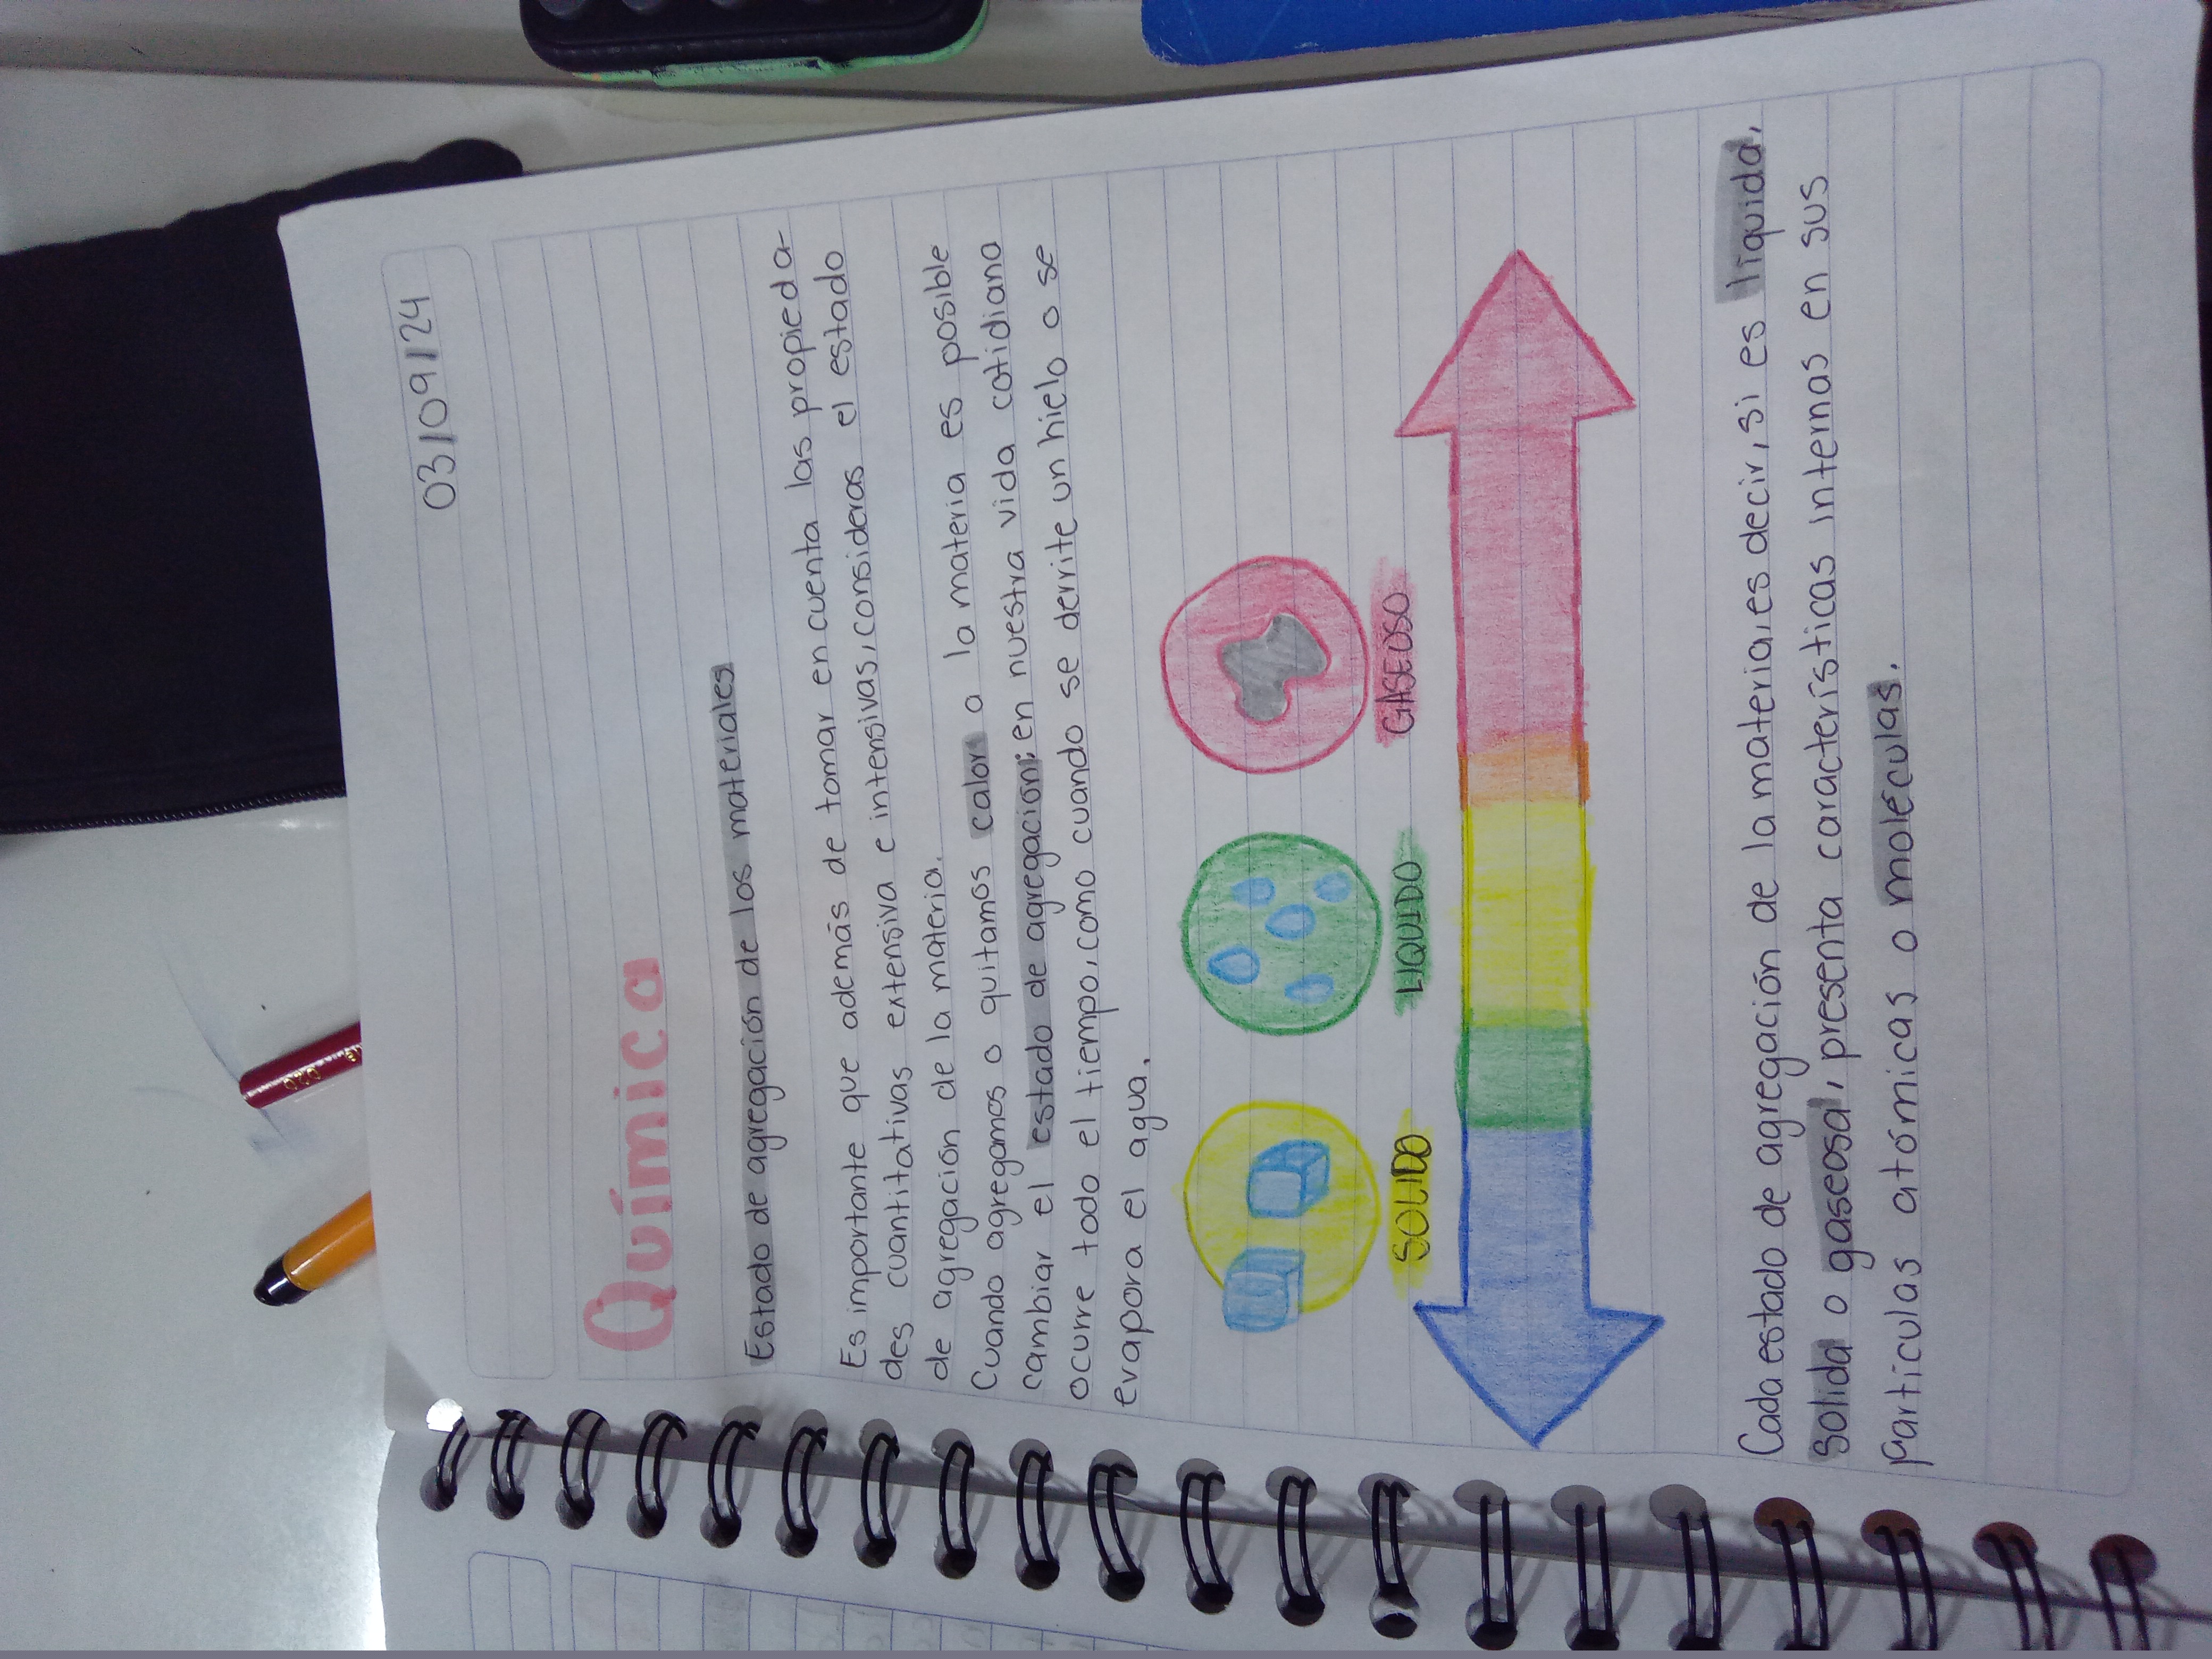 03/09/24
Química
Estado de agregación de los materiales
Es importante que además de tomar en cuenta las propieda-
des cuantitativas extensiva e intensivas, consideras el estado
de agregación de la materia.
Cuando agregamos o quitamos calor a la materia es posible
cambiar el estado de agregación; en nuestra vida cotidiana
ocurre todo el tiempo, como cuando se derrite un hielo o se
evapora el agua.
SOLIDO LIQUIDO GASEOSO
Cada estado de agregación de la materia, es decir, si es liquida,
solida o gaseosa, presenta características internas en sus
particulas atómicas o moléculas.
020